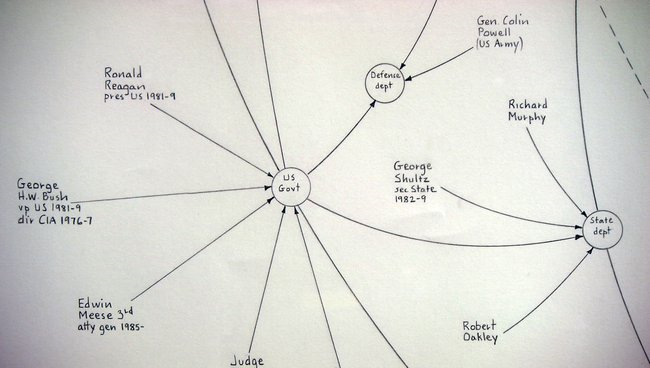 Gen. Colin
Powell
(US Army)
Defense
dept
Ronald
Reagan
pres US 1981-9
Richard
Murphy
US
Govt
George
Shultz
sec State
1982-9
George
H.W. Bush
vp US 1981-9
dir CIA 1976-7
State
dept
Edwin
Meese 3rd
atty gen 1985-
Robert
Oakley
Judge